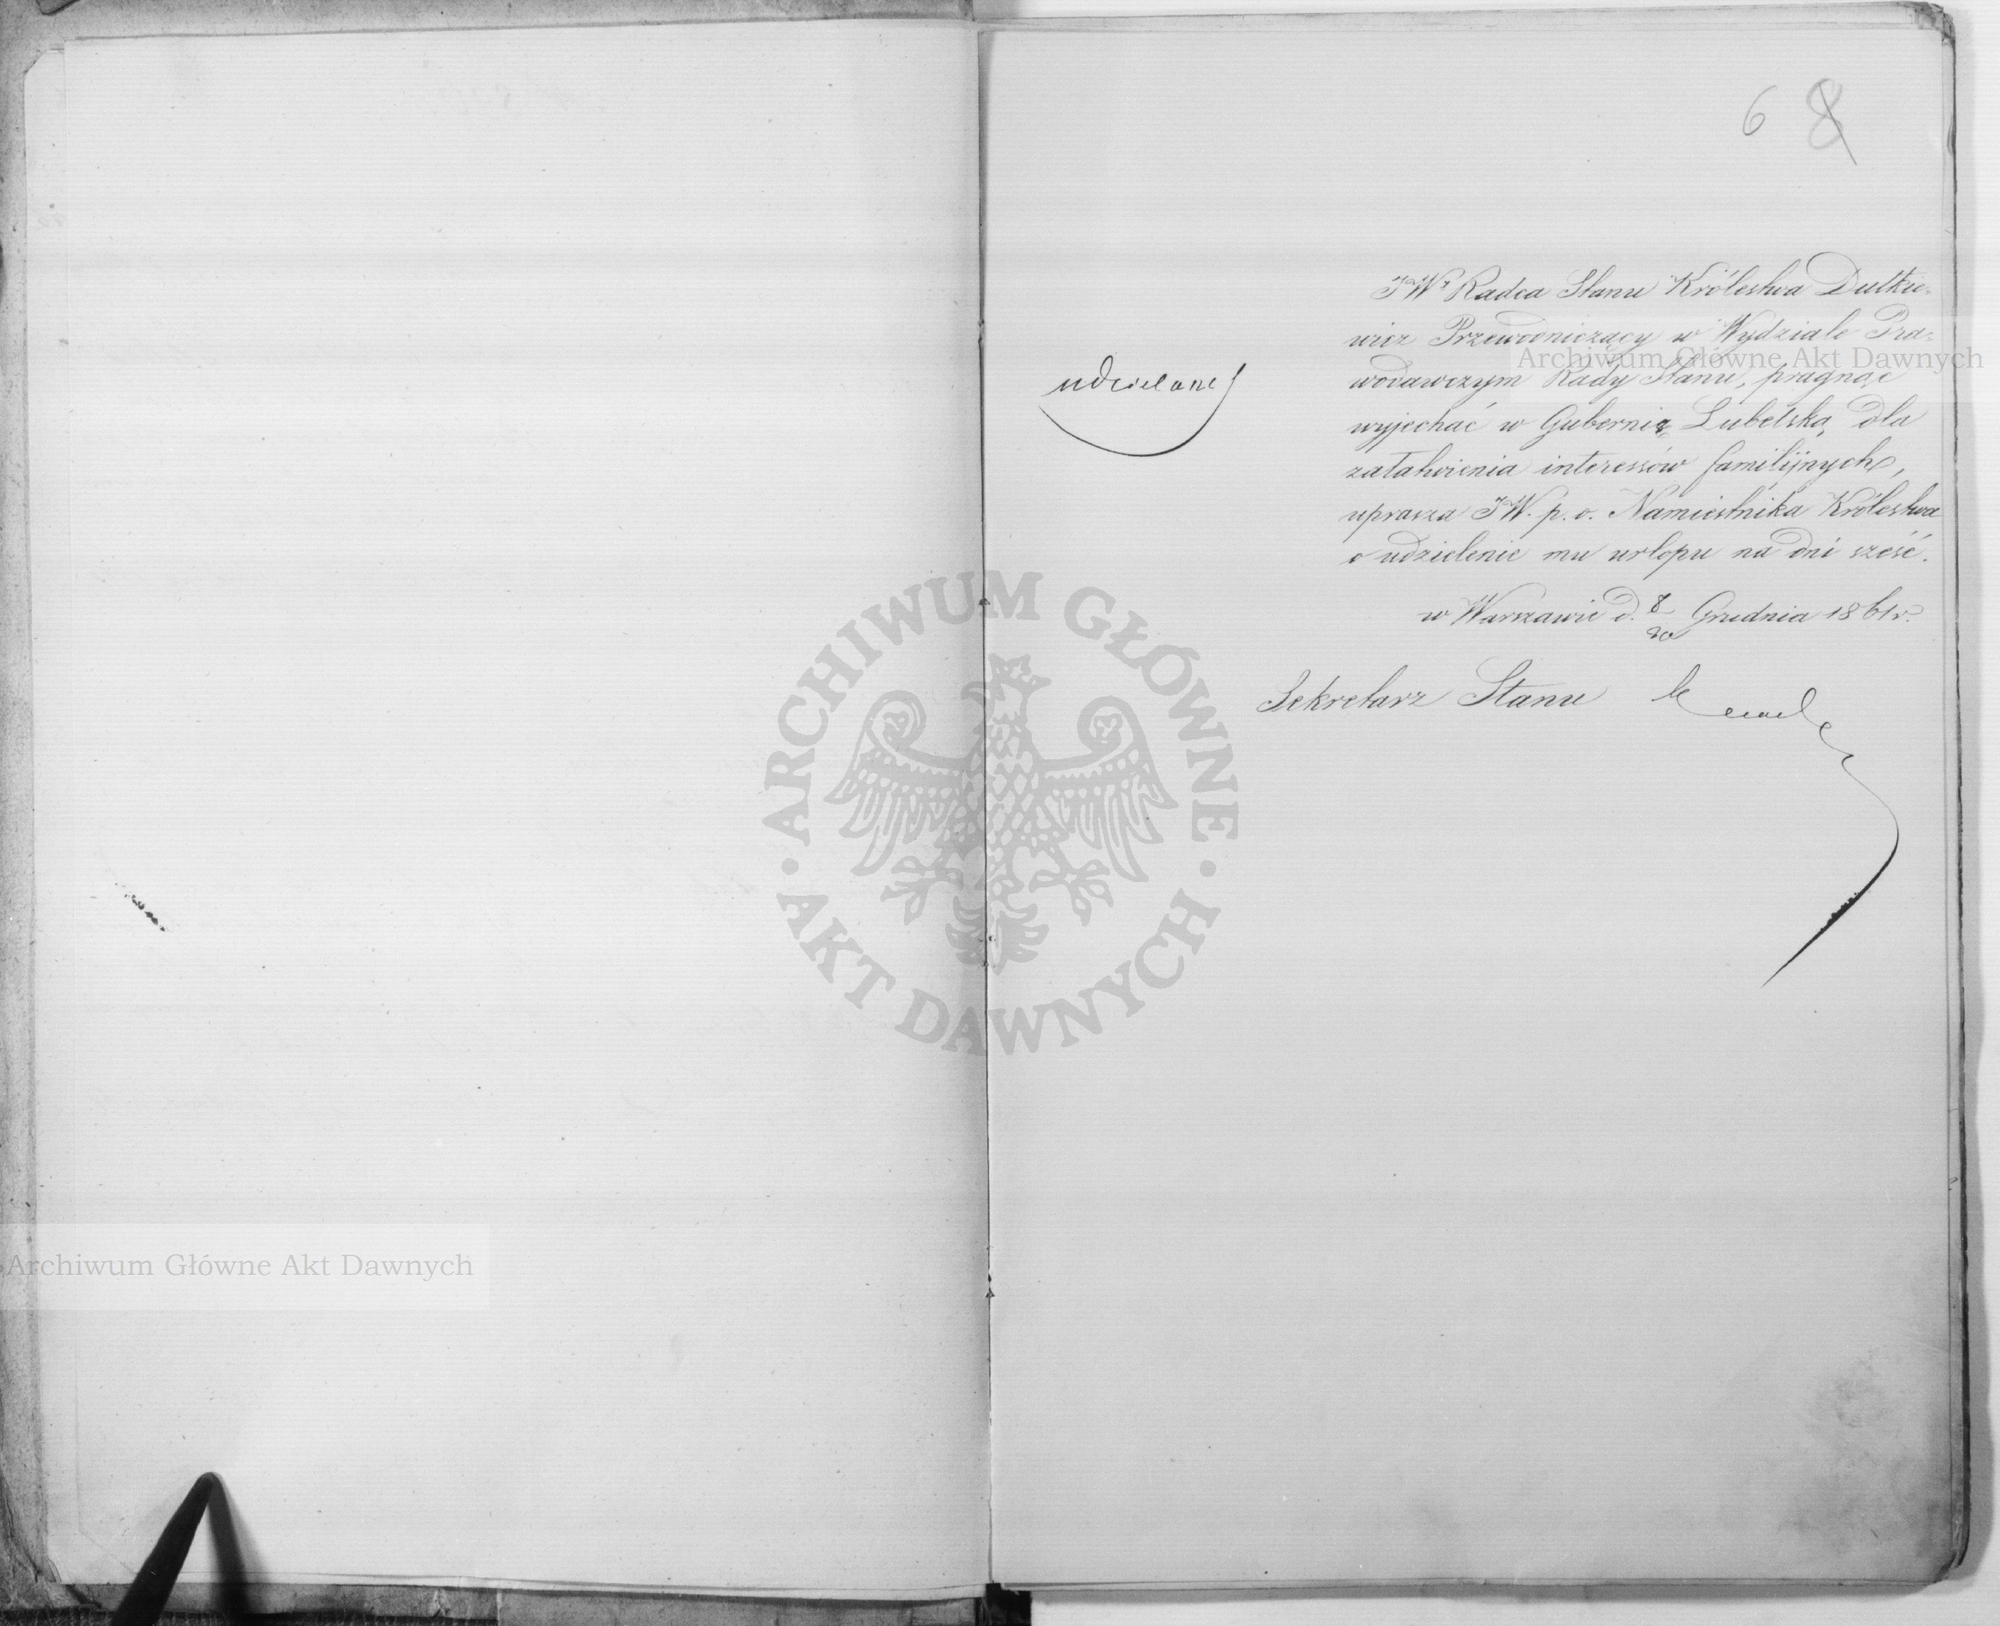 6 8
JWy Radca Stanu Królestwa Dutkie-
wicz Przewodniczący w Wydziale Pra-
wodawczym Rady Stanu, pragnąc
wyjechać w Gubernią Lubelską, dla
załatwienia interessów familijnych,
uprasza JW. p. o. Namiestnika Królestwa
o udzielenie mu urlopu na dni sześć.
w Warszawie d. 8/20 Grudnia 1861 r.
Sekretarz Stanu
udzielony
Archiwum Główne Akt Dawnych
ARCHIWUM GŁÓWNE · AKT DAWNYCH ·
Archiwum Główne Akt Dawnych